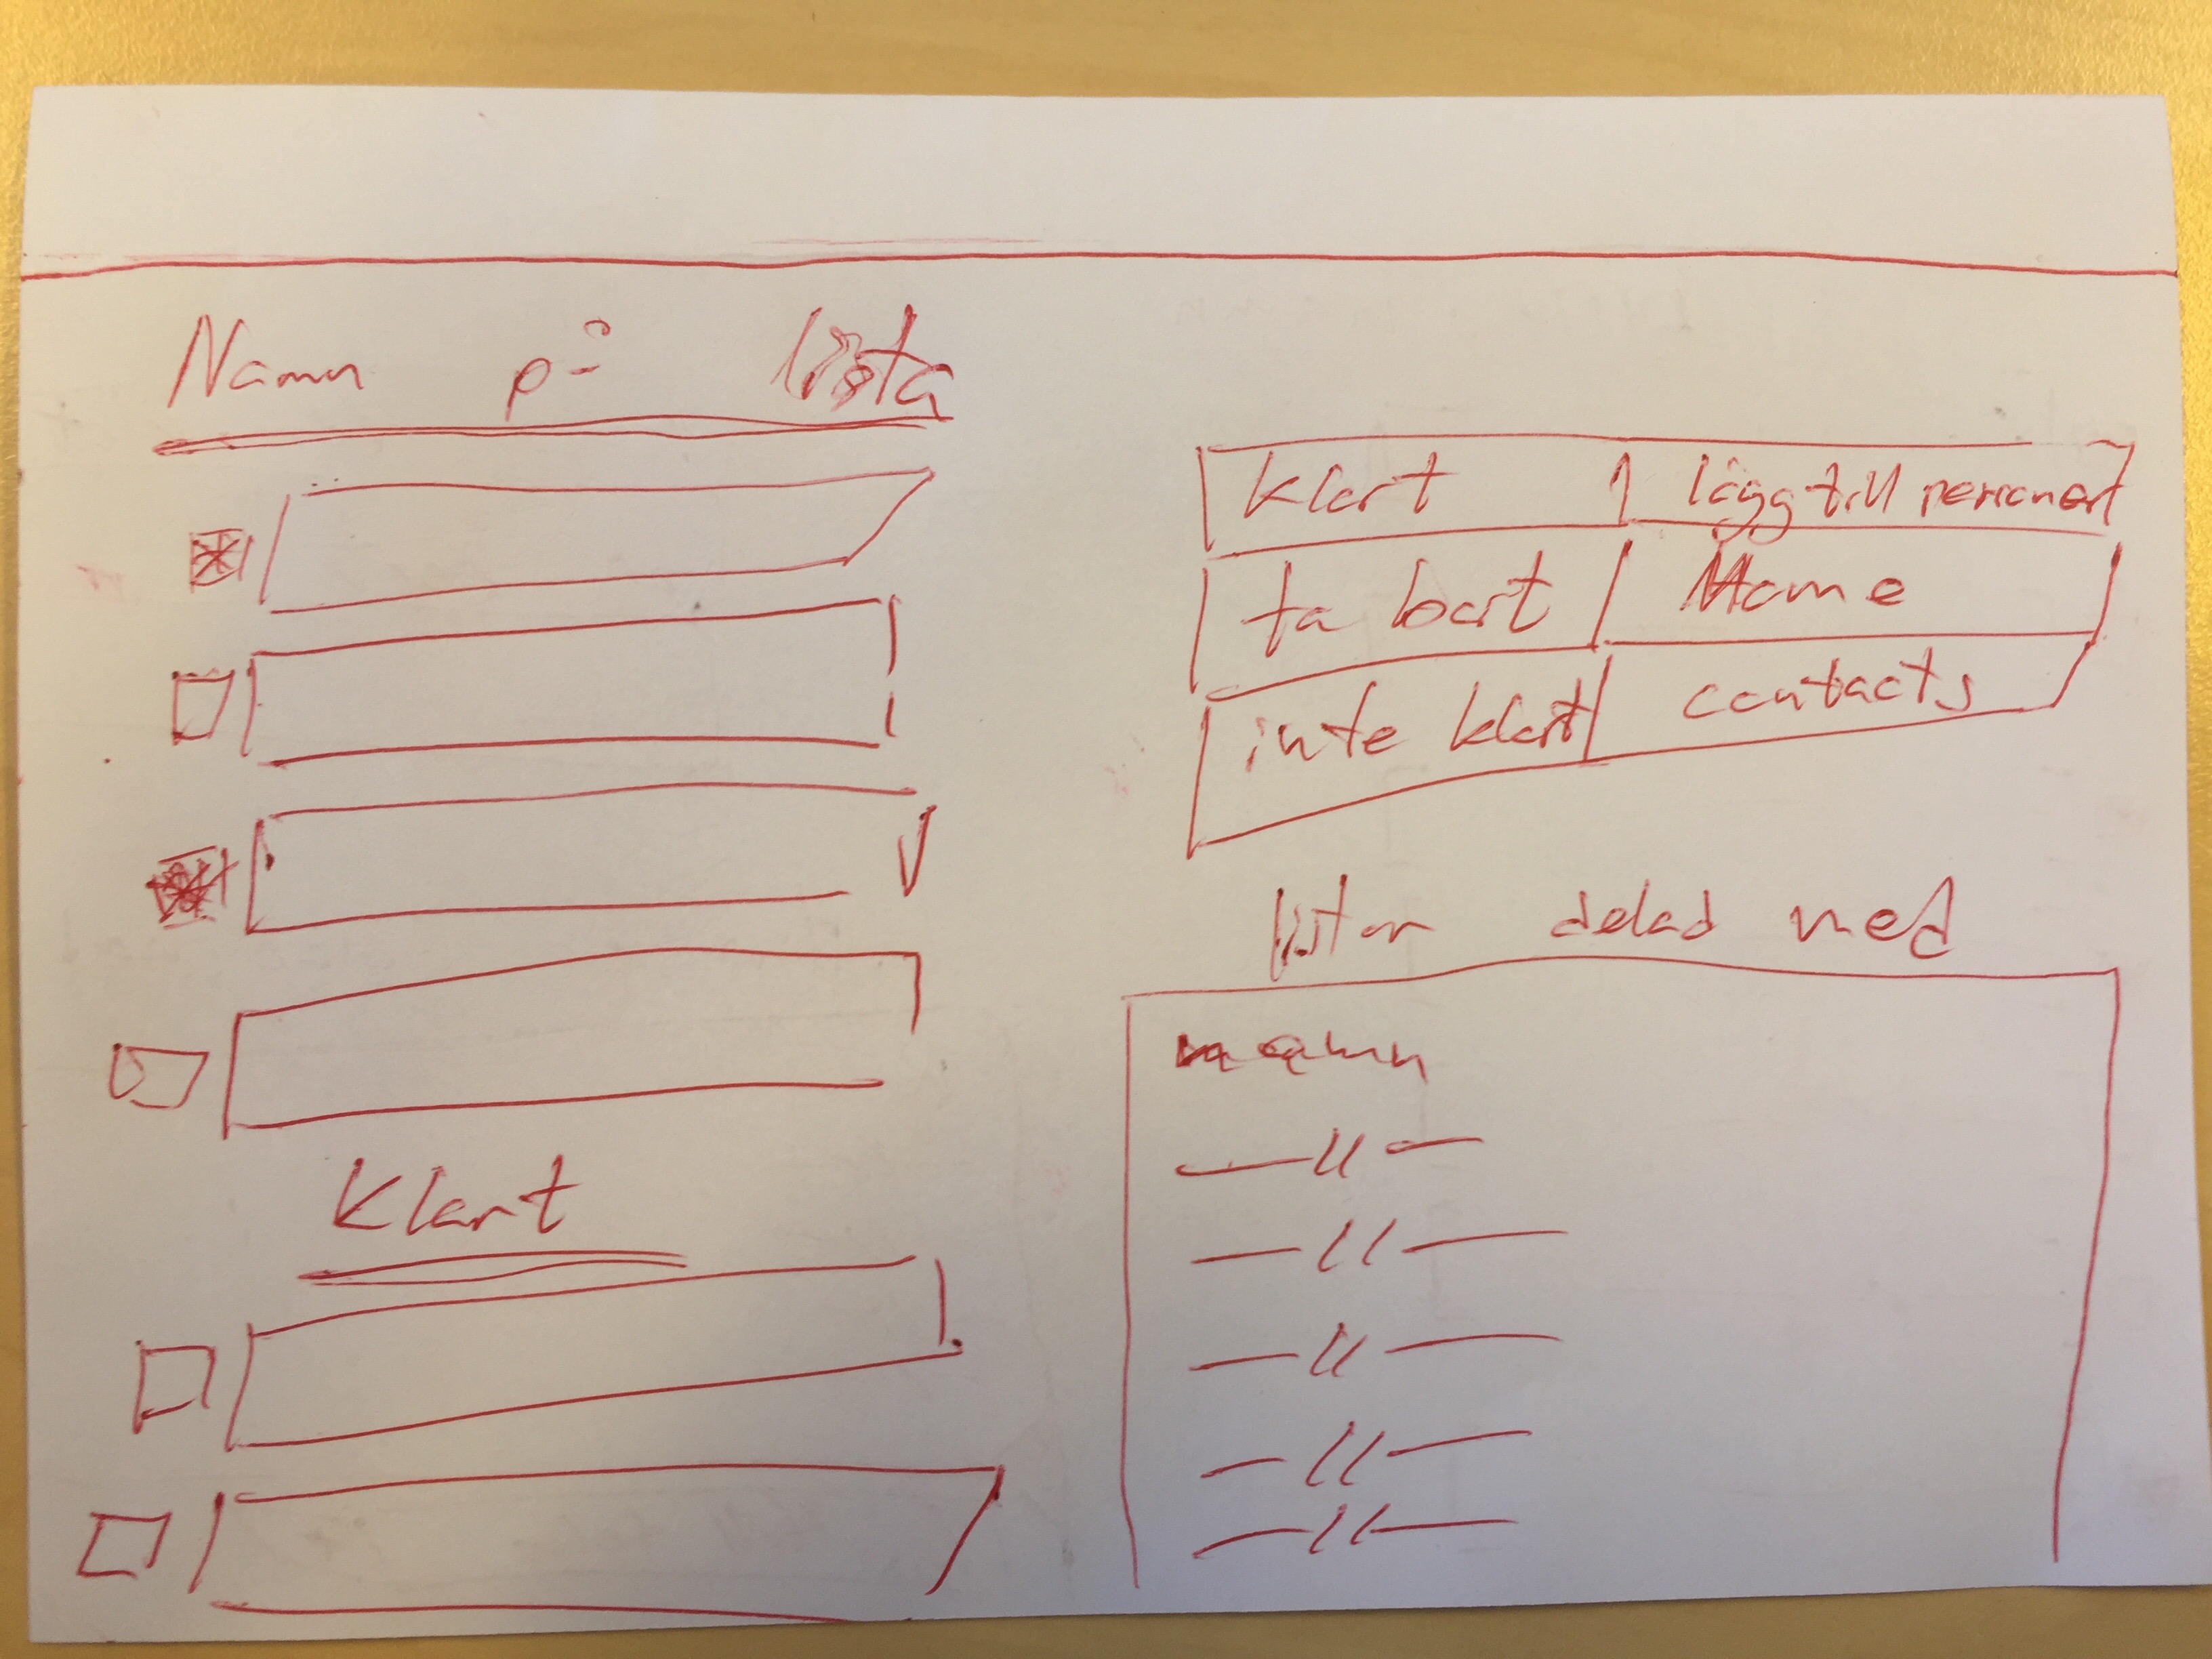 Namn på lista
Klart
klart
lägg till personer
ta bort
inte klart
contacts
listan delad med
namn
—〃—
—〃—
—〃—
—〃—
—〃—